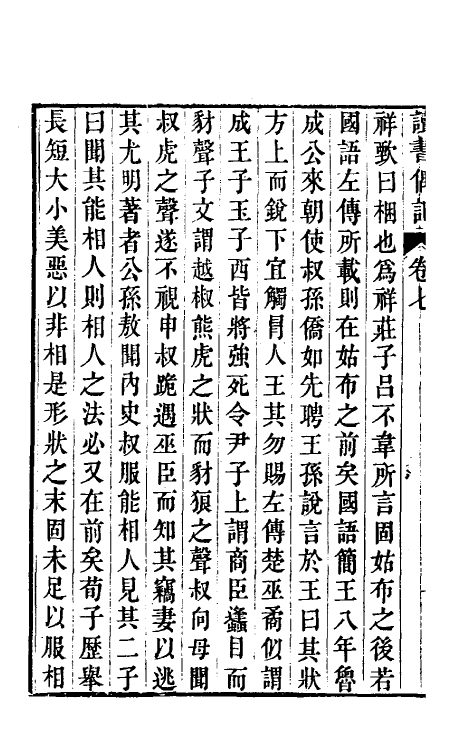 讀書偶記　卷七
祥歟曰梱也爲祥莊子呂不韋所言固姑布之後若
國語左傳所載則在姑布之前矣國語簡王八年魯
成公來朝使叔孫僑如先聘王孫說言於王曰其狀
方上而銳下宜觸冒人王其勿賜左傳楚巫矞似謂
成王子玉子西皆將強死令尹子上謂商臣蠭目而
豺聲子文謂越椒熊虎之狀而豺狼之聲叔向母聞
叔虎之聲遂不視申叔跪遇巫臣而知其竊妻以逃
其尤明著者公孫敖聞內史叔服能相人見其二子
曰聞其能相人則相人之法必又在前矣荀子歷舉
長短大小美惡以非相是形狀之末固未足以服相